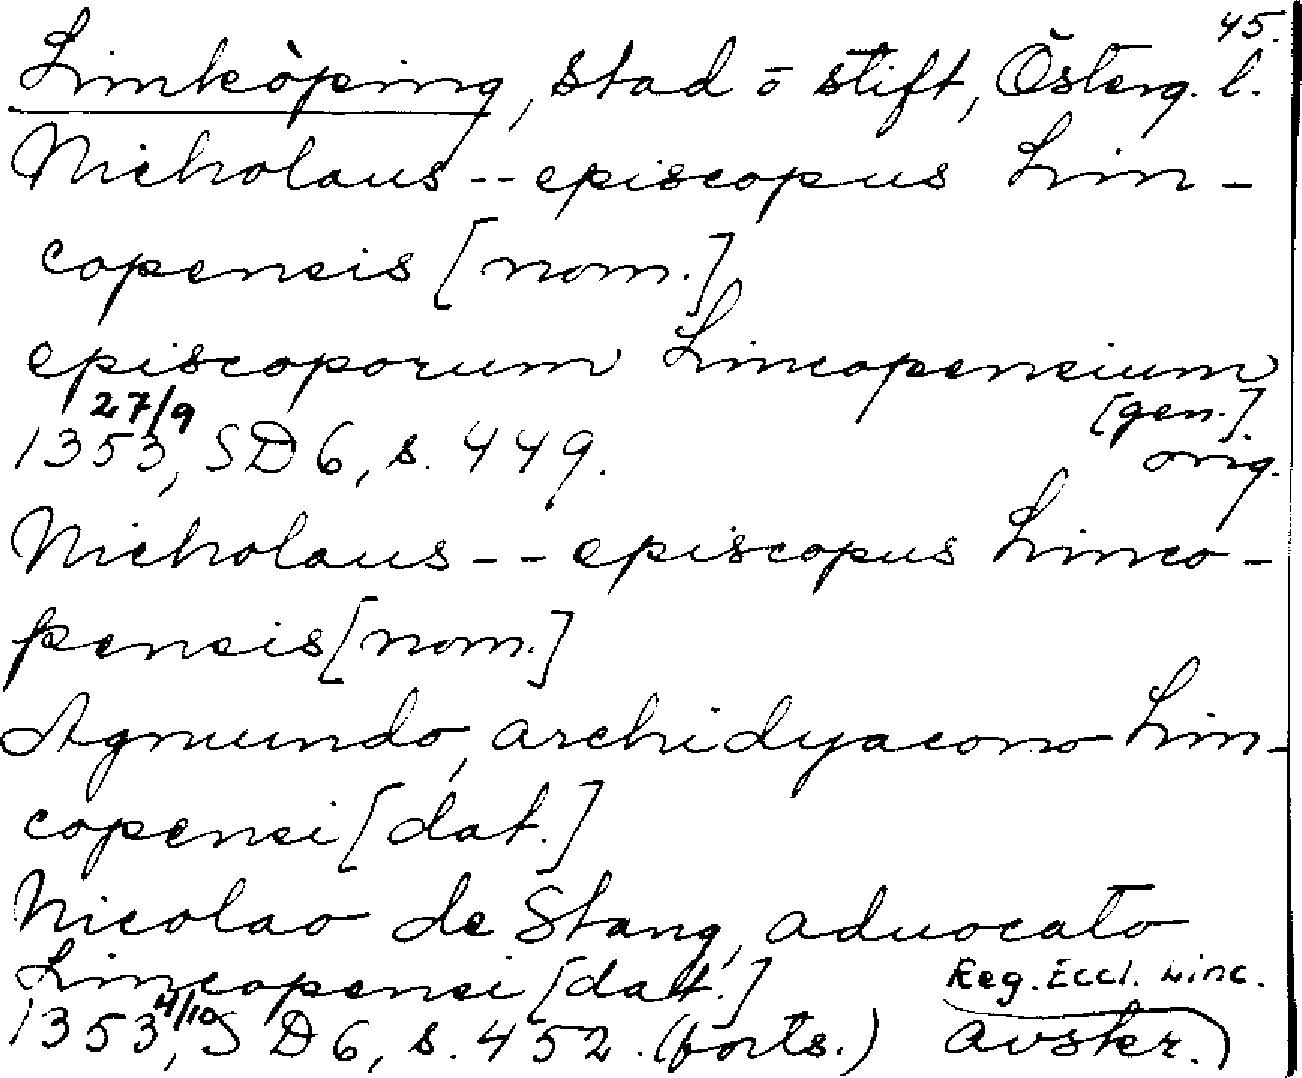 45.
Linköping, stad o stift, Österg. l.
Nicholaus -- episcopus Lin-
copensis [nom.]
episcoporum Lincopensium
[gen.].
27/9
1353, SD 6, s. 449.
orig.
Nicholaus -- episcopus Linco-
pensis [nom.]
Agmundo, archidyacono Lin-
copensi [dat.]
Nicolao de Stang, aduocato
Lincopensi [dat.]
Reg. Eccl. Linc.
4/10
1353, SD 6, s. 452. (forts.) avskr.)